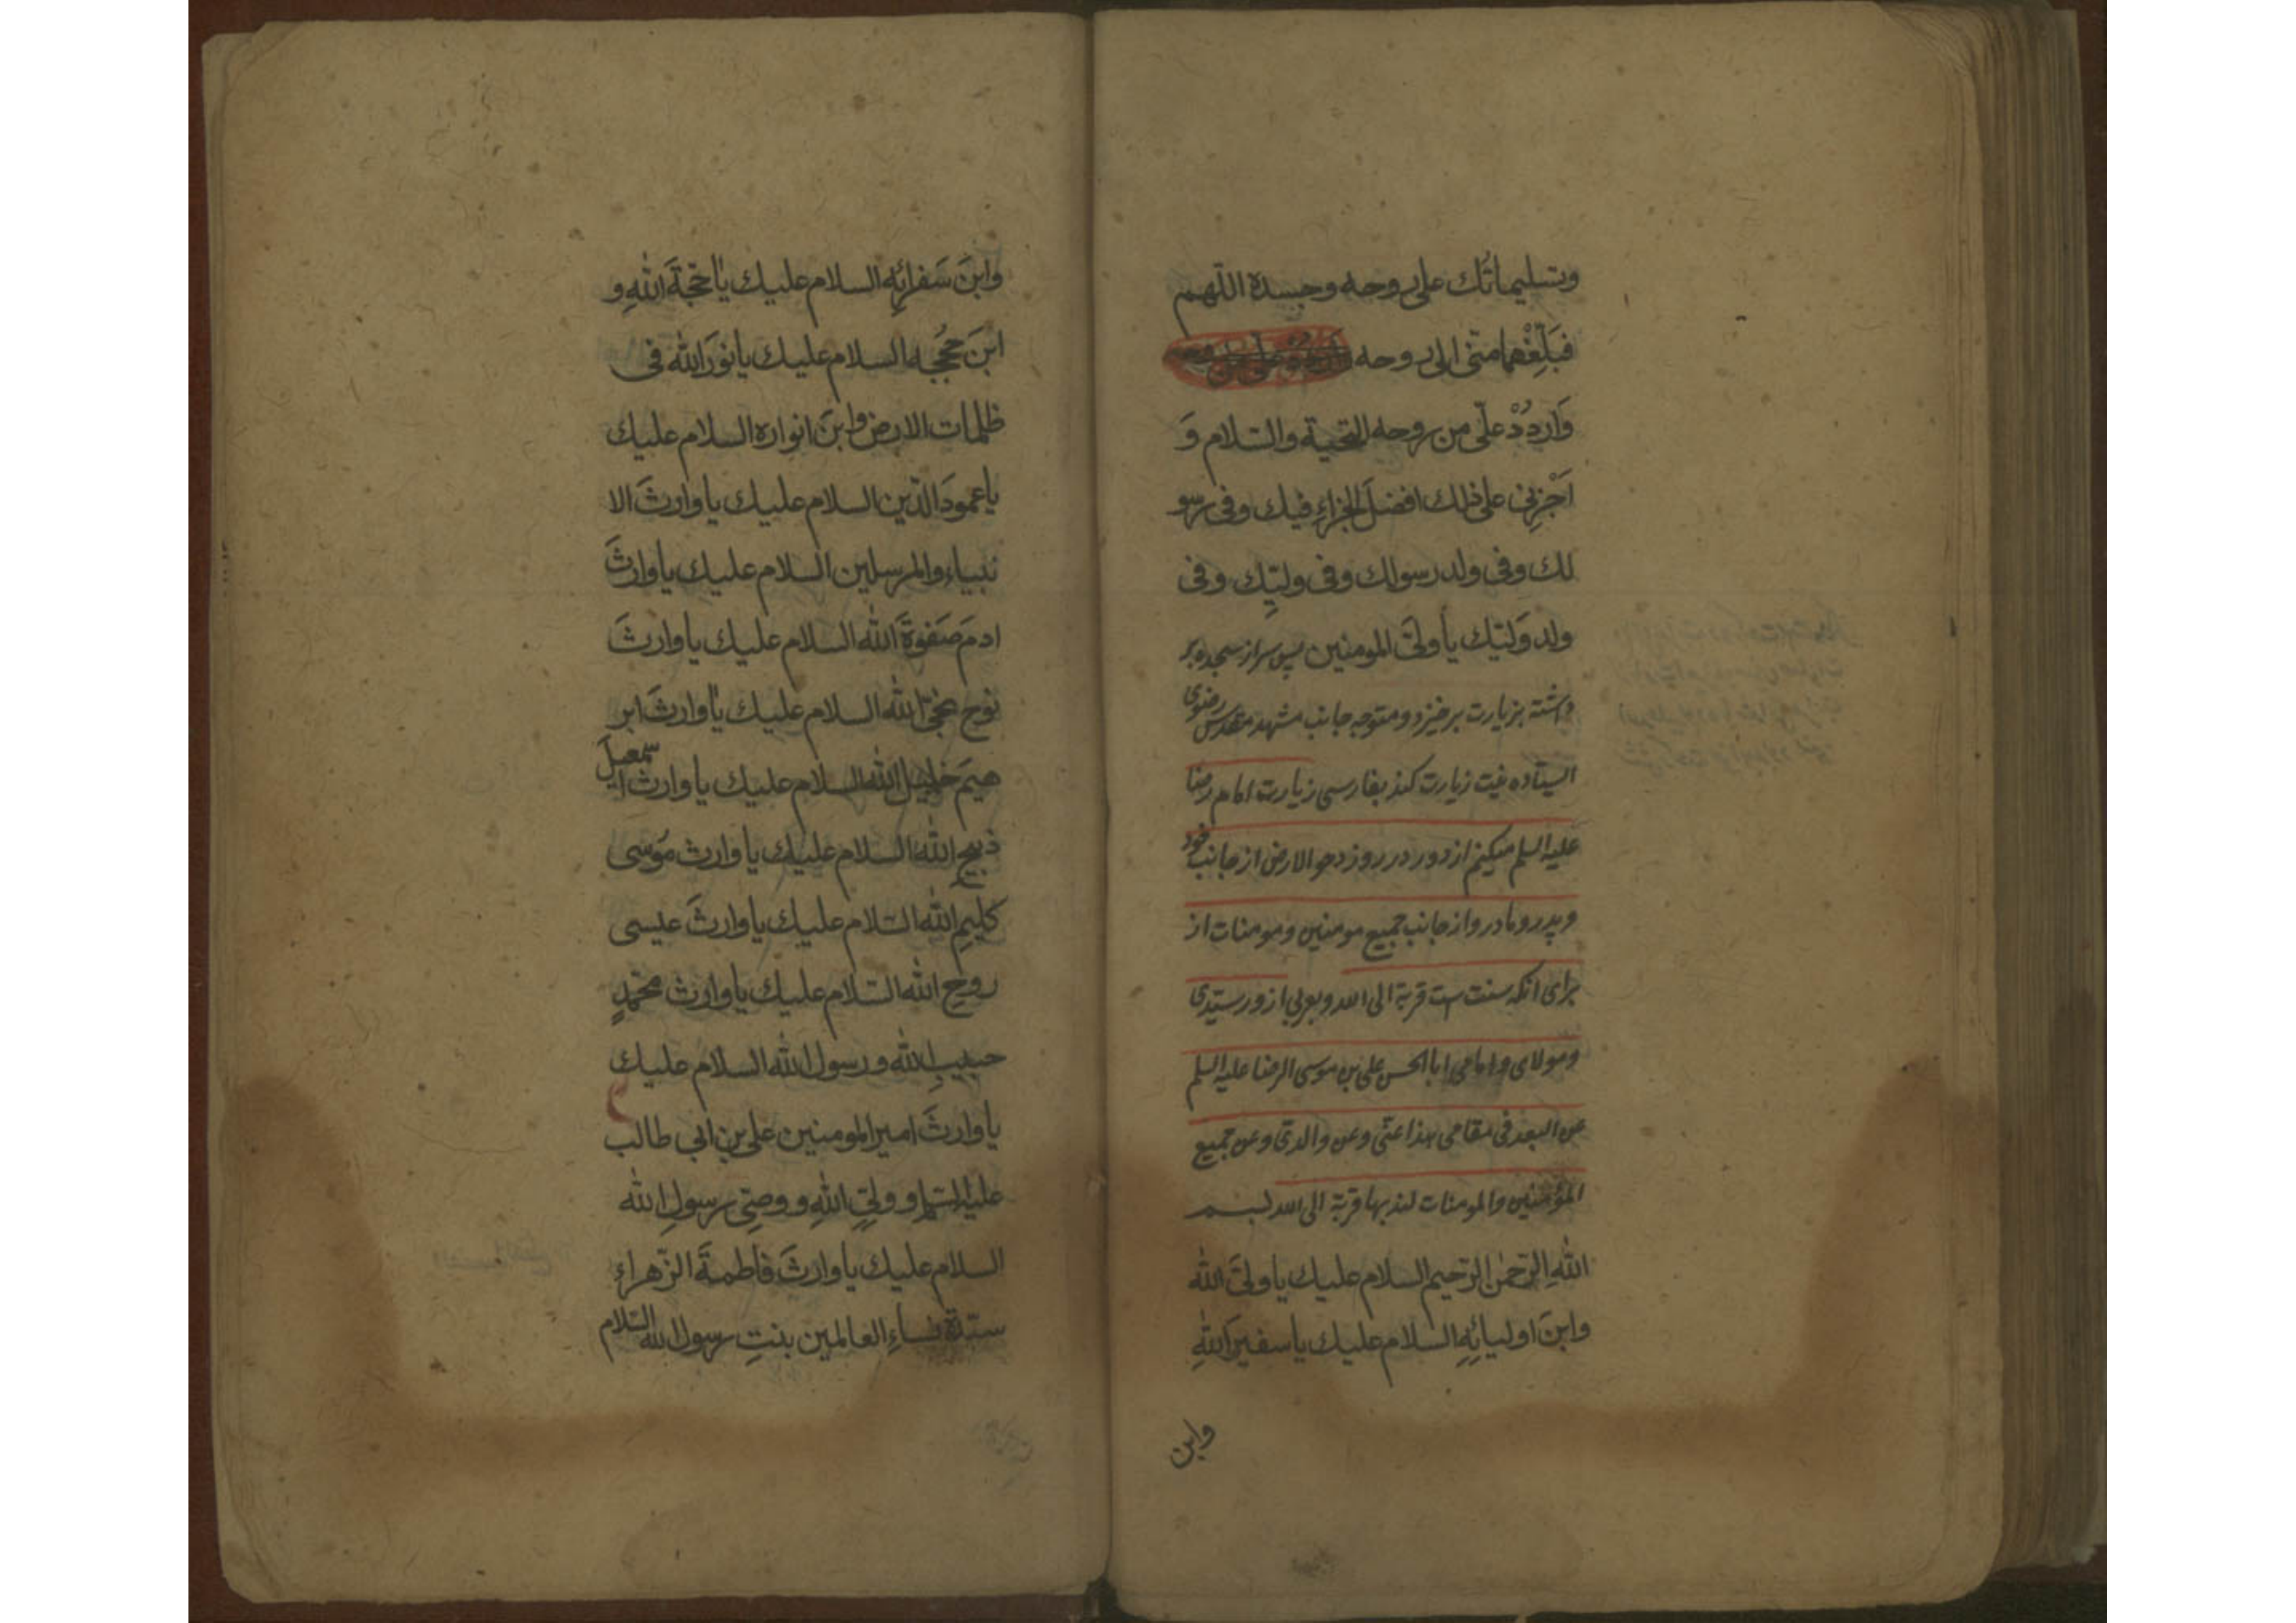 وتسليماتُك على روحه وجسده اللّهم
فَبَلِّغْهما منّى الى روحه
وَاردُدْ علّى من روحه التحية والسّلام وَ
اَجْزِنى على ذلك افضلَ الجزاءِ فيك وفى رسو
لك وفى ولد رسولك وفى وليِّك وفى
ولد وَليّك يا ولىَّ المومنين پس سر از سجده بر
داشته بزیارت برخیزد و متوجه جانب مشهد مقدس رضوی
ایستاده نیت زیارت کند بفارسی زیارت امام رضا
علیه السلم میکنم از دور در روز دحو الارض از جانب خود
و پدر و مادر و از جانب جمیع مومنین و مومنات از
برای آنکه سنت ست قربة الی الله و بعربی ازور سیّدی
و مولای و امامی ابا الحسن علی بن موسی الرضا علیه السلم
عن البعد فی مقامی هذا عنّی و عن والدیّ و عن جمیع
المؤمنین والمومنات لندبها قربة الی الله بسم
اللهِ الرّحمٰن الرّحيم السلام عليك يا ولىَّ الله
وابنَ اوليائِهِ السلام عليك يا سفيرَ اللهِ
وابن
وابنَ سَفرائِه السلام عليك يا حُجّةَ اللهِ و
ابنَ حُجَجِه السلام عليك يا نورَ الله فى
ظلمات الارض وابنَ انواره السلام عليك
يا عمودَ الدّين السلام عليك يا وارثَ الا
نبياء والمرسلين السلام عليك يا وارثَ
ادمَ صَفوَةَ الله السلام عليك يا وارثَ
نوح نجّىِ الله السلام عليك يا وارثَ ابر
هيمَ خليل الله السلام عليك يا وارث اسمعيلَ
ذبيح الله السلام عليك يا وارث مُوسى
كليمِ الله السّلام عليك يا وارثَ عيسى
روح الله السّلام عليك يا وارث محمّدٍ
حبيبِ الله ورسول الله السلام عليك
يا وارثَ امير المومنين على بن ابى طالب
عليه السّلم و ولىِّ اللهِ و وصىِّ رسولِ الله
السلام عليك يا وارثَ فاطمةَ الزّهراءِ
سيّدة نساءِ العالمين بنتِ رسول الله السّلام